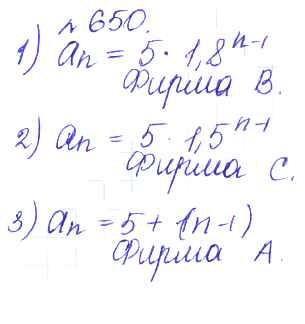 № 650.
1) aₙ = 5 · 1,8ⁿ⁻¹
Фирма В.
2) aₙ = 5 · 1,5ⁿ⁻¹
Фирма С.
3) aₙ = 5 + (n - 1)
Фирма А.